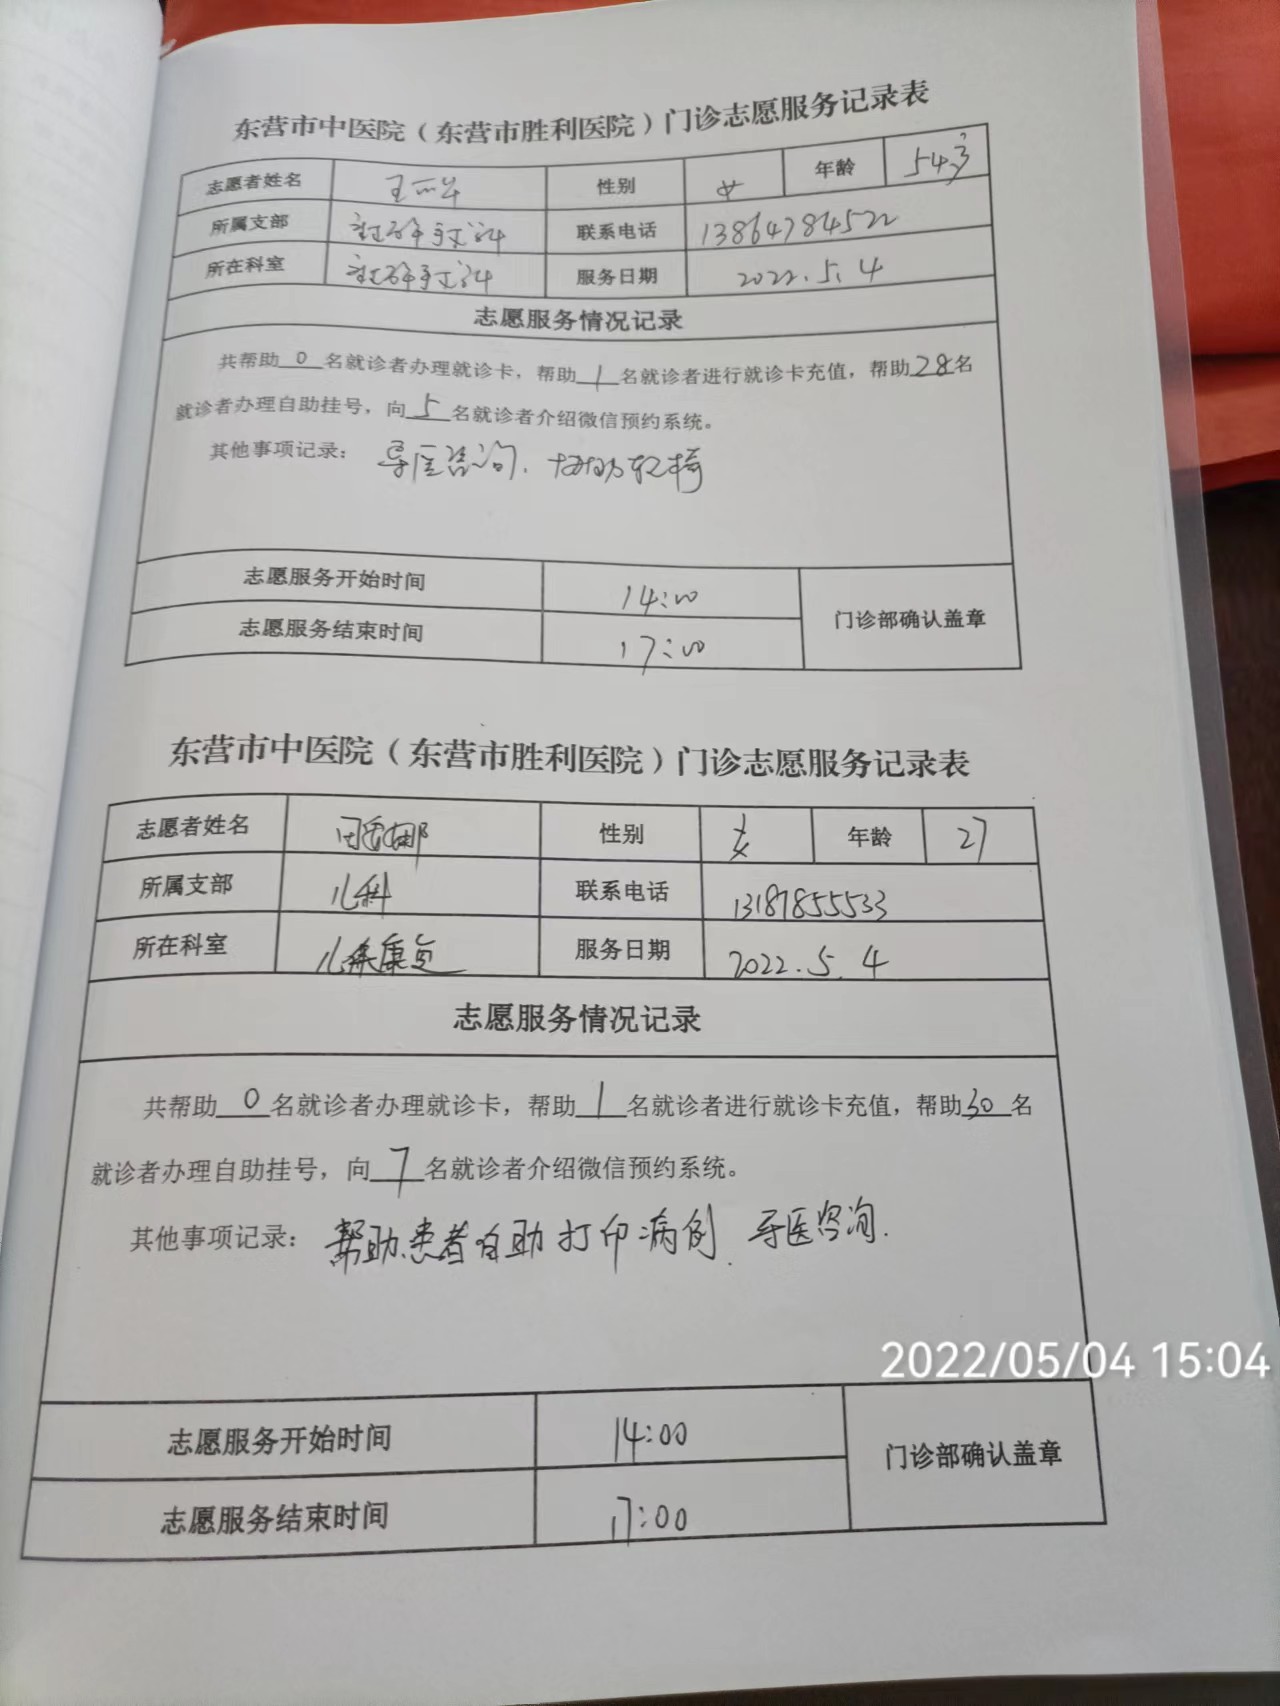 东营市中医院（东营市胜利医院）门诊志愿服务记录表
志愿者姓名 王 性别 女 年龄 54岁
所属支部 联系电话 13864784522
所在科室 服务日期 2022.5.4
志愿服务情况记录
共帮助0名就诊者办理就诊卡，帮助1名就诊者进行就诊卡充值，帮助28名
就诊者办理自助挂号，向5名就诊者介绍微信预约系统。
其他事项记录：导医咨询.协助轮椅
志愿服务开始时间 14:00
门诊部确认盖章
志愿服务结束时间 17:00
东营市中医院（东营市胜利医院）门诊志愿服务记录表
志愿者姓名 田 娜 性别 女 年龄 27
所属支部 儿科 联系电话 13187855533
所在科室 康复 服务日期 2022.5.4
志愿服务情况记录
共帮助0名就诊者办理就诊卡，帮助1名就诊者进行就诊卡充值，帮助30名
就诊者办理自助挂号，向7名就诊者介绍微信预约系统。
其他事项记录：帮助患者自助打印病例.导医咨询.
2022/05/04 15:04
志愿服务开始时间 14:00
门诊部确认盖章
志愿服务结束时间 17:00